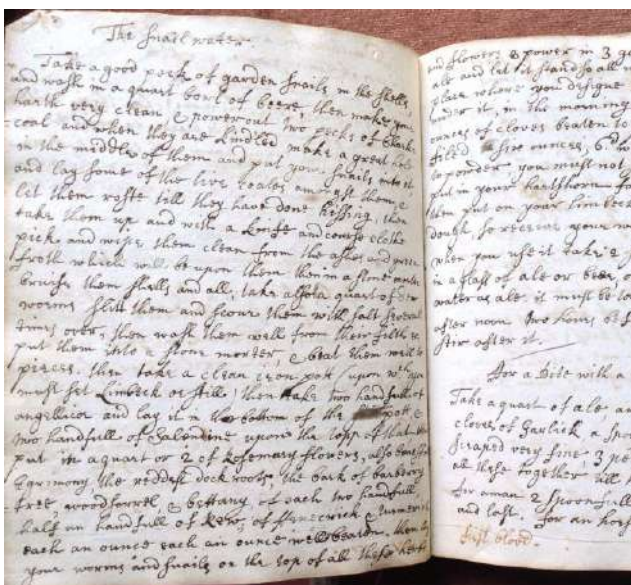 The Snael water.
Take a good peck of garden snails in the shells,
and wash in a quart bowl of beere, then make your
harth very clean & power out two pecks of Chark-
-coal and when they are kindled make a great hole
in the middle of them and put your snails into it,
and lay some of the live coales amongst them, &
let them roste till they have done hissing, then
take them up and with a knife and course clothe
picke and wipe them clean from the ashes and green
froth which will be upon them then in a stone morter
bruise them shells and all, take also a quart of
worms slitt them and scour them with salt several
times over, then wash them well from their filth &
put them into a stone morter, & beat them well to
pieces, then take a clean iron pott (upon wch you
must set Limbeck or still) then take two handfull of
angellica and lay it in the bottom of the pott &
two handfull of Salondine upon the topp of that then
put in a quart or 2 of Rosemary flowers, also
Egrimony the reddest dock roots, the bark of barberry
tree, woodsorrel, & bettany of each two handfull
half an handfull of Rew, of & turmerick
each an ounce each an ounce well beaten, then lay
your worms and snails on the top of all these herbs
and flowers & power in 3
ale and let it stand so all
place where you
under it, in the morning
ounces of cloves beaten to
filed six ounces, 6d
to powder you must not
put in your hartshorn
then put on your limbeck
dough, so receive your
when you use it take 2
in a glass of ale or beer,
water as ale, it must be
after noon two hours
stir after it.
for a Bite with a
Take a quart of ale an
cloves of Garlick a spoo
scraped very fine, 3
all these together till
for a man 2 spoonfulls
and last. for an hors
first blood.